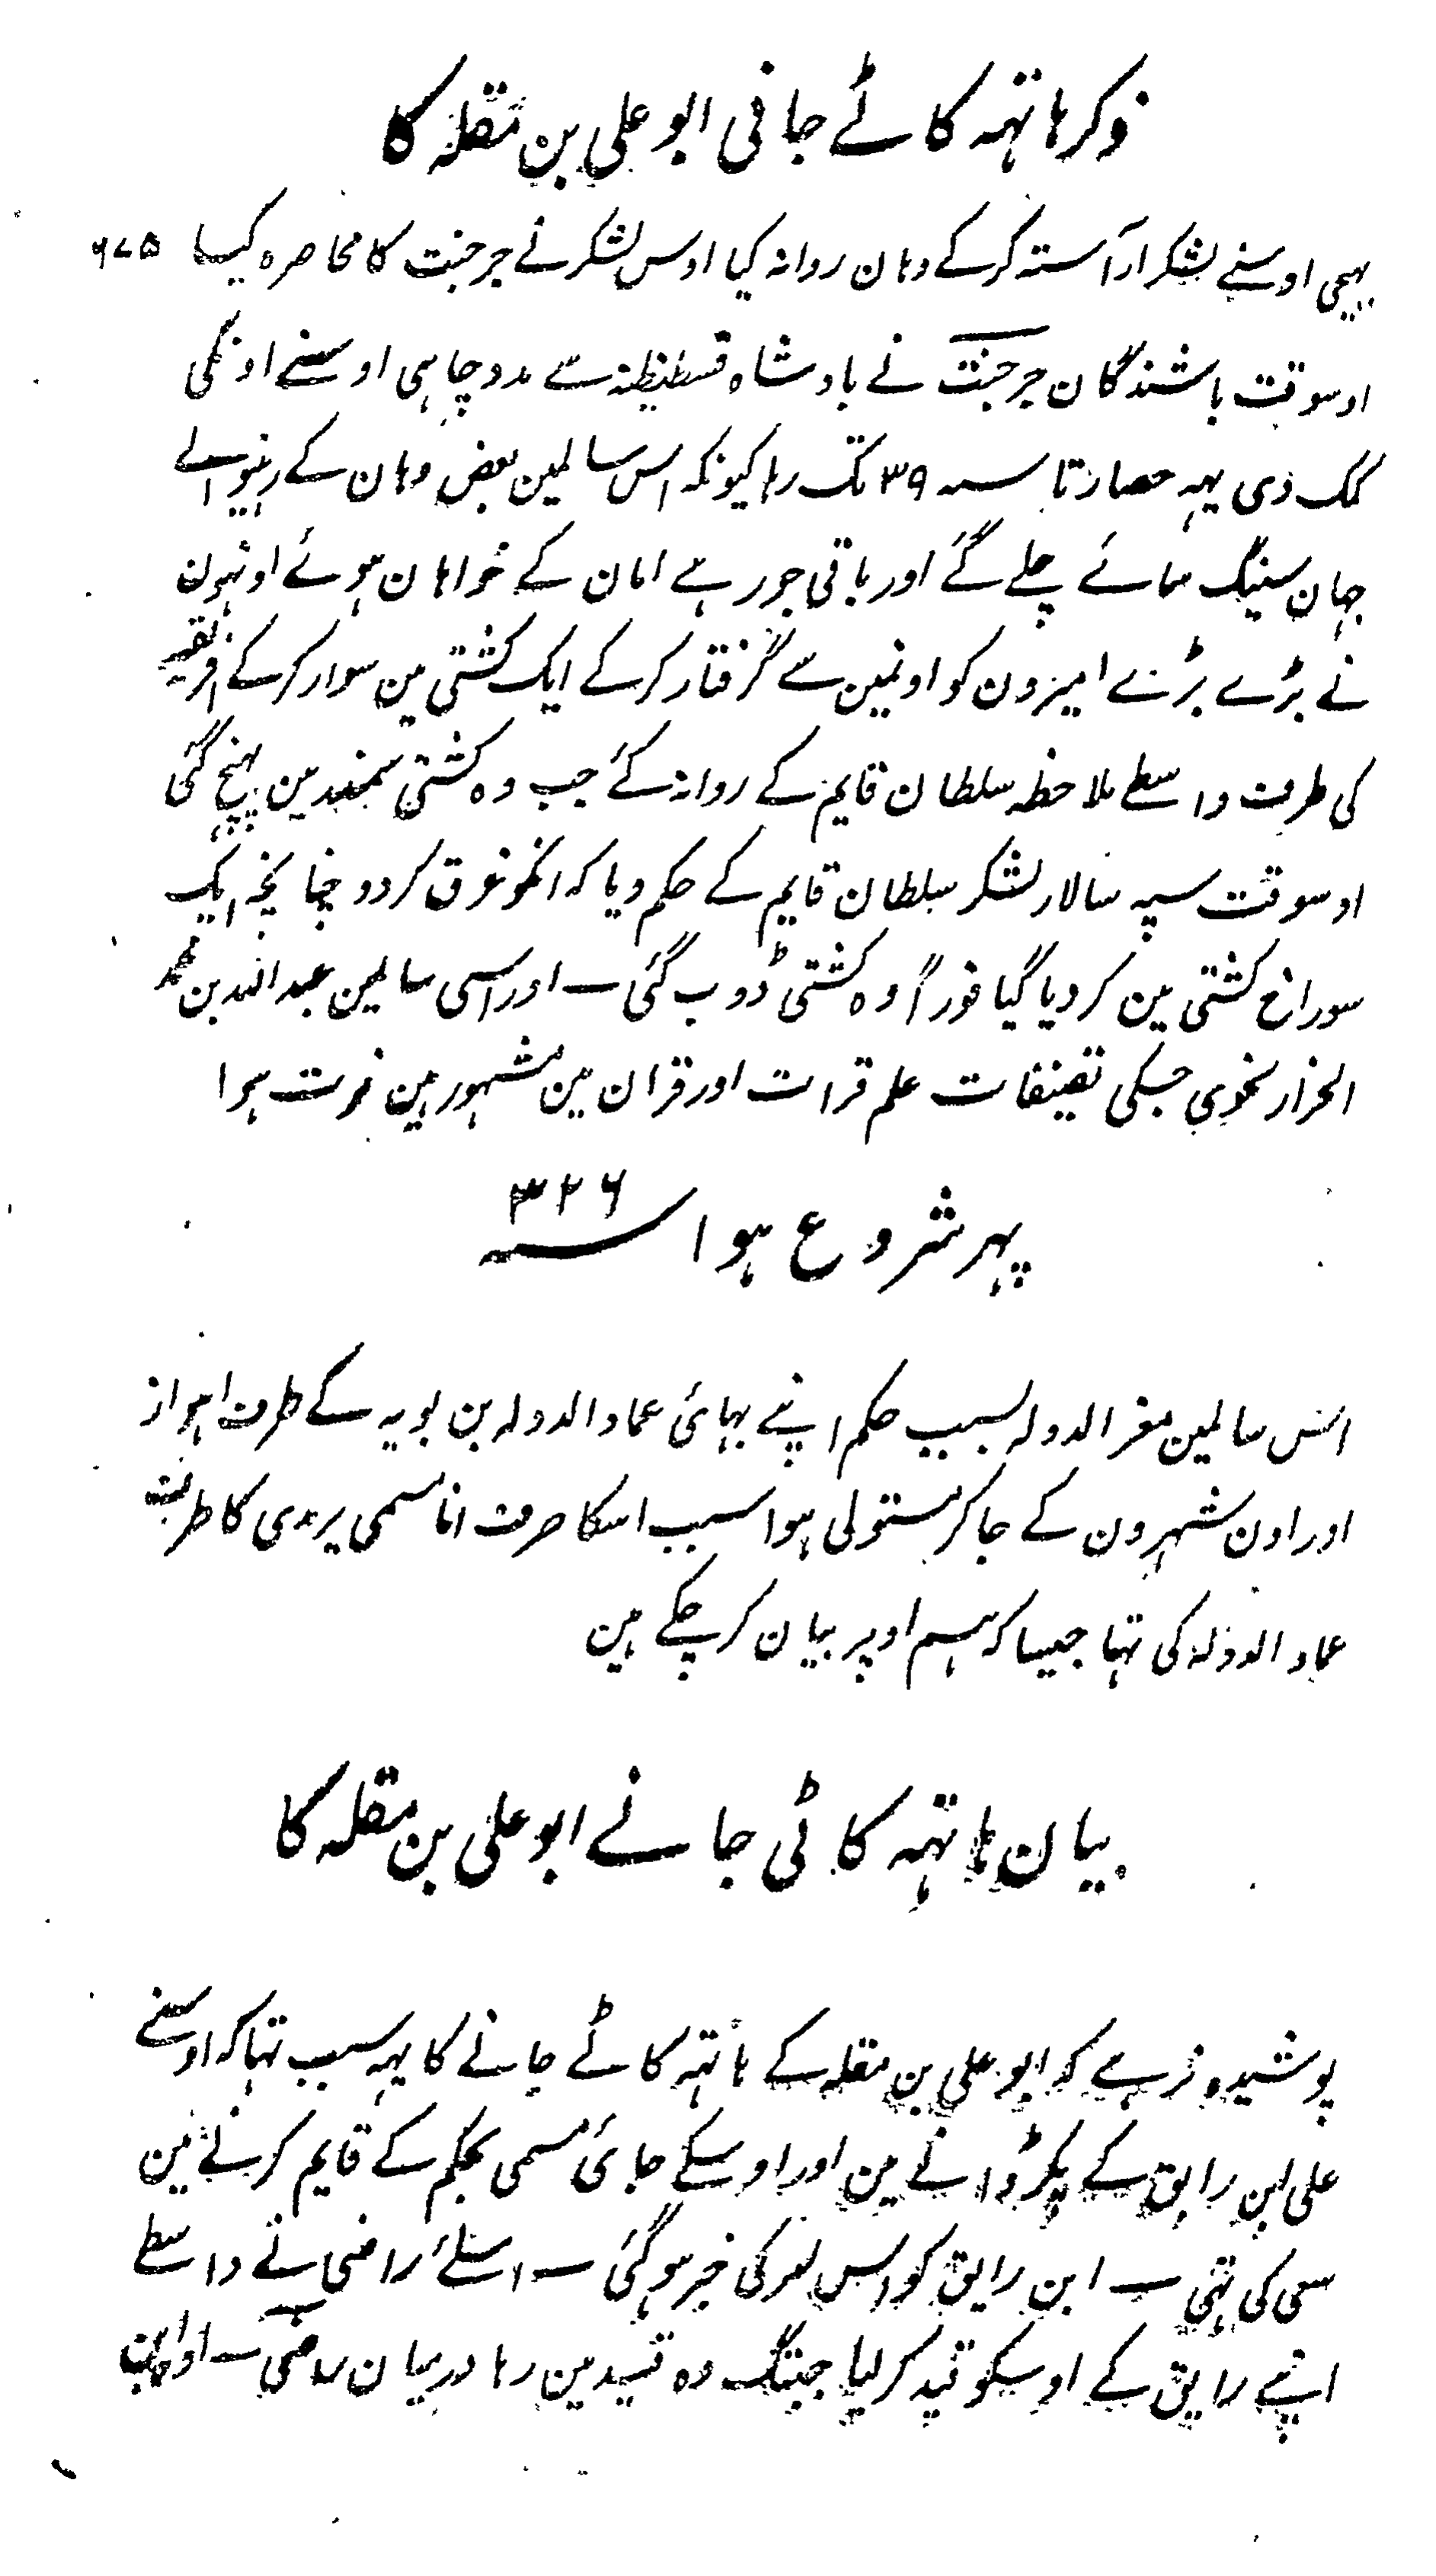 ذکر ہاتہہ کاٹے جانی ابو علی بن مقلہ کا
بہیجی اوسنے لشکر آراستہ کرکے وہان روانہ کیا اوس لشکر نے جرجنت کا محاصرہ کیا ۶۷۵
اوسوقت باشندگان جرجنت نے بادشاہ قسطنطنیہ سے مدد چاہی اوسنے اونکی
کمک دی یہہ حصار تا سنہ ۳۹ تک رہا کیونکہ اس سالمین بعض وہان کے رہنیوالے
جہان سینگ سمائے چلے گئے اور باقی جو رہے امان کے خواہان ہوئے اونہون
نے بڑے بڑے امیرون کو اونمین سے گرفتار کرکے ایک کشتی مین سوار کرکے افریقیہ
کی طرف واسطے ملاحظہ سلطان قایم کے روانہ کئے جب وہ کشتی سمندر مین پہنچ گئی
اوسوقت سپہ سالار لشکر سلطان قایم کے حکم دیا کہ انکو غرق کر دو چنانچہ ایک
سوراخ کشتی مین کر دیا گیا فوراً وہ کشتی ڈوب گئی ــ اور اسی سالمین عبد اللہ بن محمد
الخزار نحوی جسکی تصنیفات علم قرات اور قران مین مشہور ہین فوت ہوا
پہر شروع ہوا سنہ ۳۲۶
اس سالمین معز الدولہ بسبب حکم اپنے بہائی عماد الدولہ بن بویہ کے طرف اہواز
اور اون شہرون کے جا کر مستولی ہوا سبب اسکا صرف انا مسمی بریدی کا طرف
عماد الدولہ کی تہا جیسا کہ ہم اوپر بیان کر چکے ہین
بیان ہاتہہ کاٹی جانے ابو علی بن مقلہ کا
پوشیدہ نر ہے کہ ابو علی بن مقلہ کے ہاتہہ کاٹے جانے کا یہہ سبب تہا کہ اوسنے
علی ابن رایق کے پکڑوانے مین اور اوسکے جائ مسمی بجکم کے قایم کرنے مین
سعی کی تہی ــ ابن رایق کو اس امر کی خبر ہو گئی ــ اسلئے راضی نے واسطے
اپنے رایق کے اوسکو قید کر لیا جبتک وہ قید مین رہا درمیان راضی ــ اور ابن